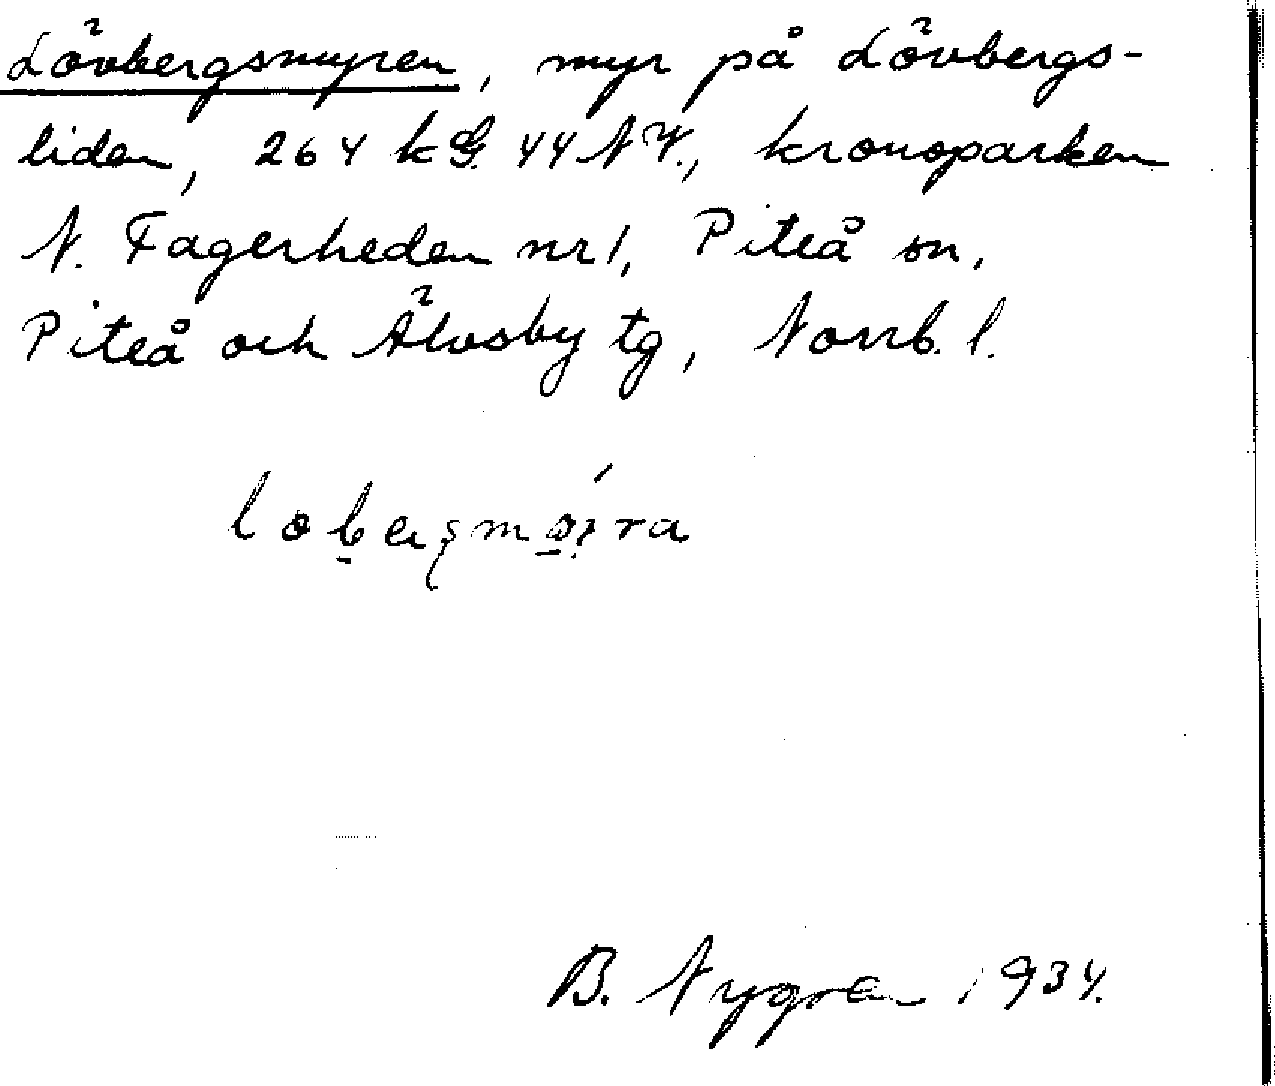 Lövbergsmyren, myr på Lövbergs-
liden, 264 kG. 44 NV., kronoparken
N. Fagerheden nr 1, Piteå sn,
Piteå och Älvsby tg, Norrb. l.
B. Nygren 1934.